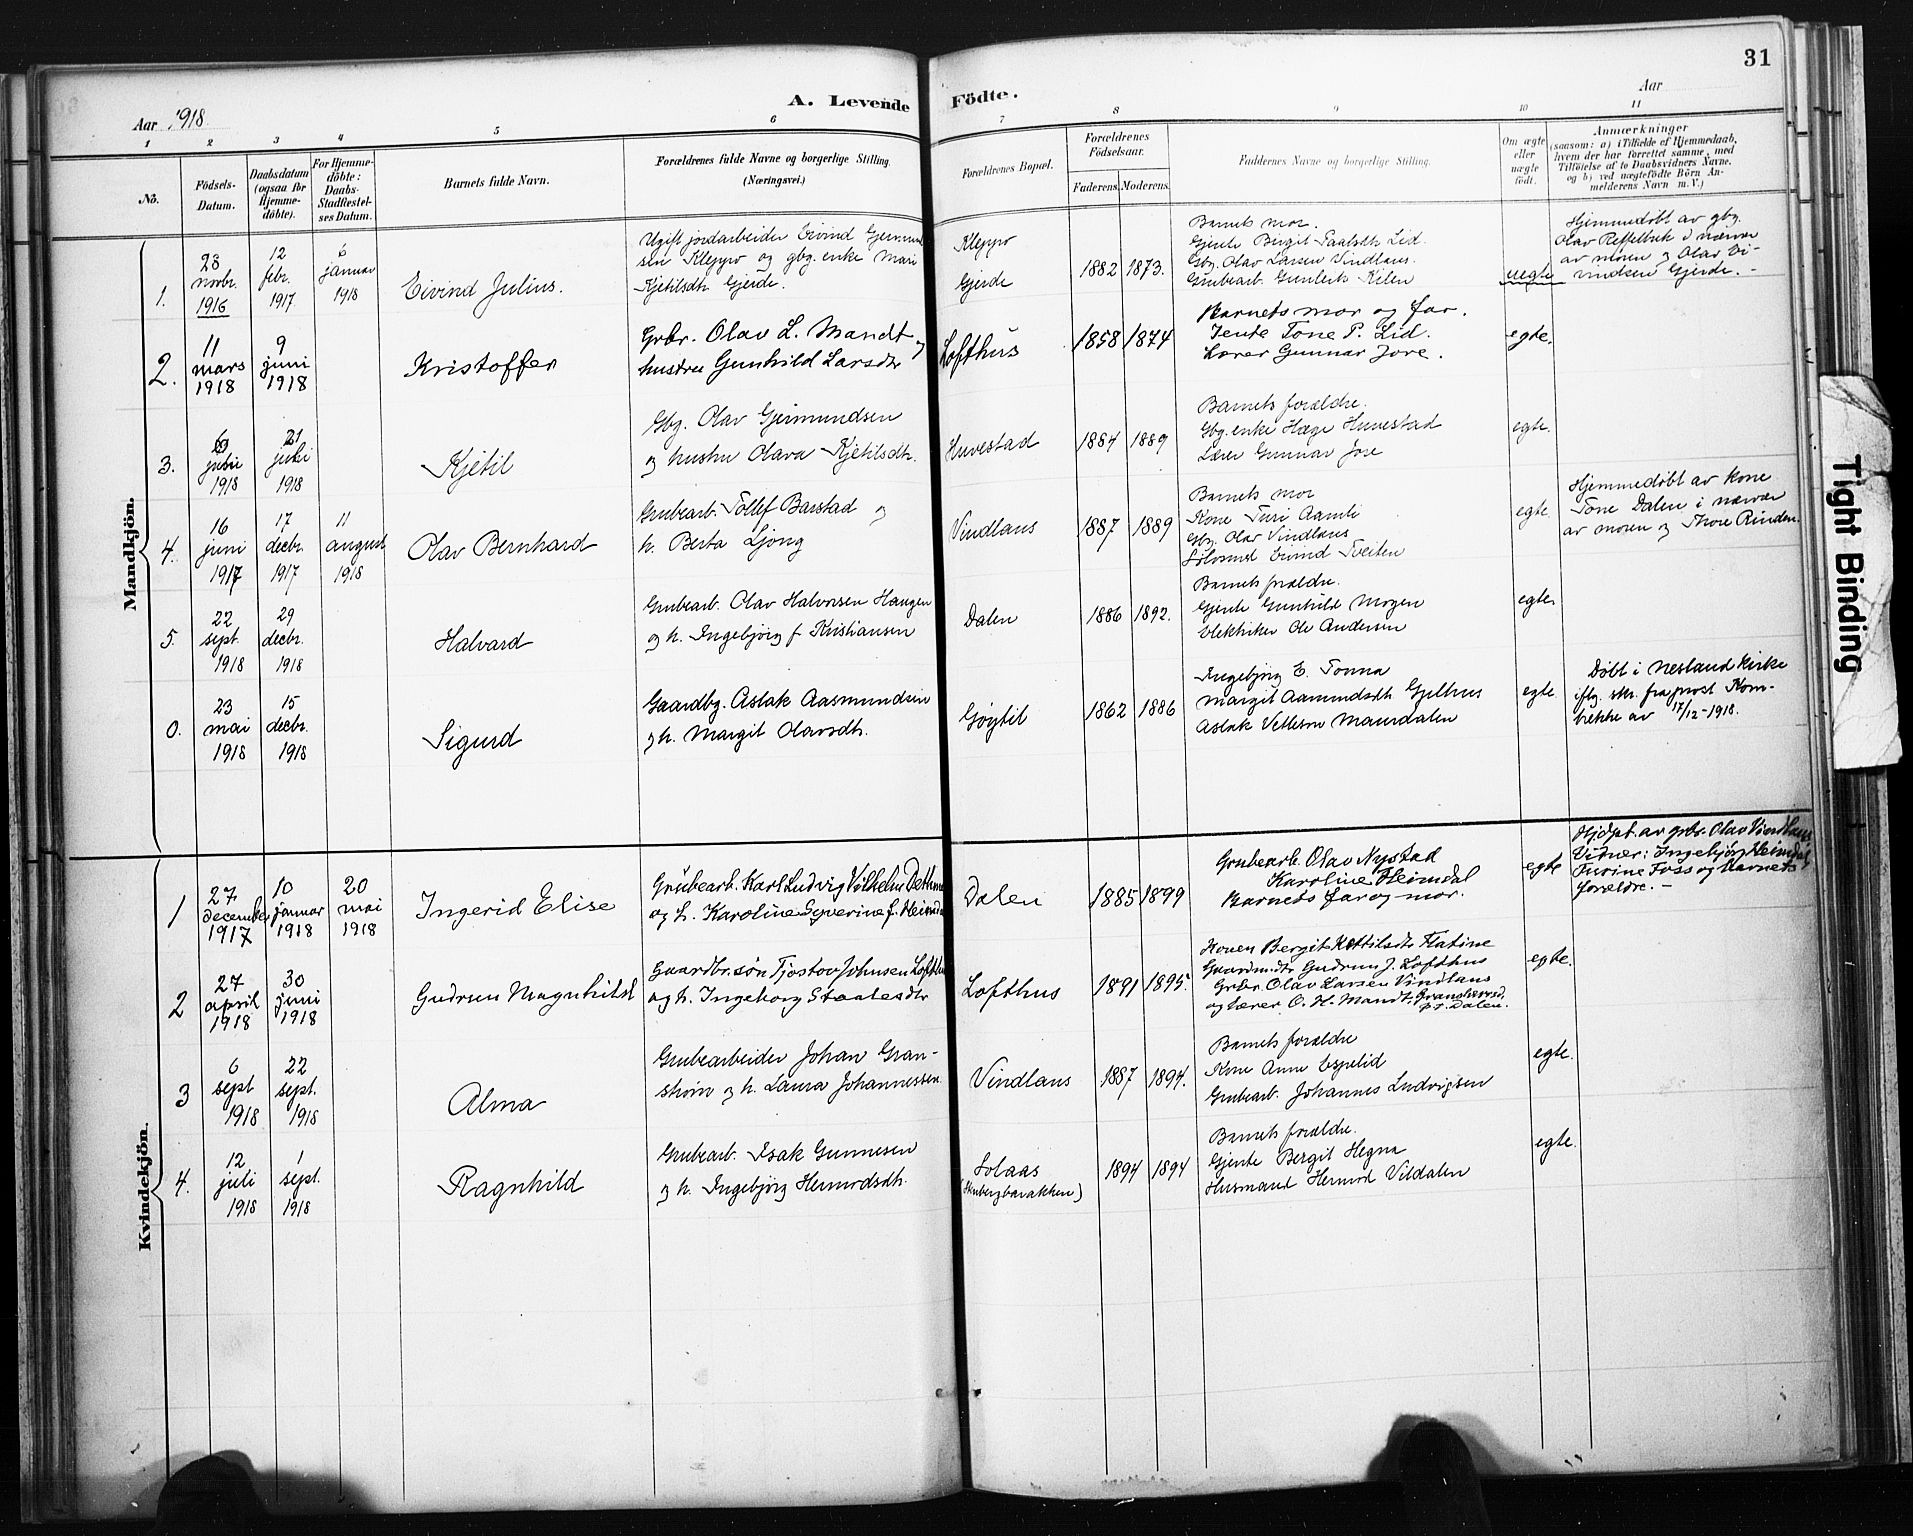 31
A. Levende Födte.
Aar 1918.
Aar
1 2 3 4 5 6 7 8 9 10 11
No.
Födsels-
Datum.
Daabsdatum
(ogsaa for
Hjemme-
döbte).
For Hjemme-
döbte:
Daabs-
Stadfestel-
ses Datum.
Barnets fulde Navn.
Forældrenes fulde Navne og borgerlige Stilling.
(Næringsvei.)
Forældrenes Bopæl.
Forældrenes
Födselsaar.
Faderens. Moderens.
Faddernes Navne og borgerlige Stilling.
Om ægte
eller
uægte
födt.
Anmærkninger
(saasom: a) i Tilfælde af Hjemmedaab,
hvem der har forrettet samme, med
Tilföielse af to Daabsvidners Navne.
og b) ved uægtefödte Börn An-
melderens Navn m. V.)
Mandkjön.
1.
23
novbr.
1916
12
febr.
1917
6
januar
1918
Eivind Julius.
Ugift jordarbeider Eivind Gjermund
sen Kleppo og gbg. enke Mari
Kjetilsdtr. Gjerde.
Kleppo
Gjerde
1882 1873.
Barnets mor.
Gjente Birgit Saalsdtr. Lid.
Gbg. Olav Larsen Vindlaus.
Grubearb. Gunleik Kilen
uegte
Hjemmedøbt av gbg.
Olav Reffelbek i nærvær
av moren og Olav Ei-
vindsen Gjerde. -
2.
11
mars
1918
9
juni
1918
Kristoffer
Grbr. Olav L. Mandt og
hustru Gunhild Larsdtr
Lofthus
1858 1874
Barnets mor og far.
Jente Tone P. Lid.
Lærer Gunnar Jore.
egte.
3.
6
juli
1918
21
juli
1918
Kjetil
Gbg. Olav Gjermundsen
og hustru Olava Kjetilsdtr.
Huvestad
1884 1889
Barnets forældre.
Gbg. enke Hæge Huvestad
Lærer Gunnar Jore
egte.
4.
16
juni
1917
17
decbr.
1917
11
august
1918
Olav Bernhard
Grubearb. Tollef Barstad og
h. Berta Ljong
Vindlaus
1887 1889
Barnets mor
Kone Turi Aamli
Gbg. Olav Vindlaus
Eivind Tveiten
egte
Hjemmedøbt av kone
Tone Dalen i nærvær
av moren og Thore Rinden.
5.
22
sept.
1918
29
decbr.
1918
Halvard
Grubearb. Olav Halvorsen Haugen
og h. Ingebjørg f. Kristiansen
Dalen
1886 1892.
Barnets forældre.
Gjente Gunhild Mogen
Elektriker Ole Andersen
egte.
0.
23
mai
1918
15
decbr.
1918
Sigurd
Gaardbg. Aslak Aasmundsen
og h. Margit Olavsdtr.
Gøytil
1862 1886
Ingebjørg E. Tonna
Margit Aamundsdtr.
Aslak Vetleson Manndalen
egte
Døbt i Nesland kirke
iflg. skr. fra prost Kom-
17/12-1918.
Kvindekjön.
1
27
december
1917
10
januar
1918
20
mai
1918
Ingerid Elise
Grubearb. Karl Ludvig Vilhelm
og h. Karoline Syverine f. Heimdal
Dalen
1885 1899
Grubearb. Olav Nystad
Karoline Heimdal
Barnets far og mor.
egte
Hjdpt. av grbr. Olav Vindlaus
Vidner: Ingebjørg Heimdal,
Turine Foss og barnets
forældre. -
2
27
april
1918
30
juni
1918
Gudrun Magnhild
Gaardbr. søn Tjostov Johnsen Lofthus
og h. Ingeborg Staalesdtr
Lofthus
1891 1895.
Konen Bergit Kittilsdtr Flatine
Gudrun J. Lofthus
Grbr. Olav Larsen Vindlaus
og lærer O. H. Mandt,
p.t. Dalen.
egte.
3
6
sept
1918
22
sept.
1918
Alma
Grubearbeider Johan Gran-
strøm og h. Laura Johannessen
Vindlaus
1887 1894.
Barnets forældre
Kone Anne Espelid
Grubearb. Johannes Ludvigsen
egte.
4.
12
juli
1918
1
sept.
1918
Ragnhild
Grubearb. Isak Gunnesen
og h. Ingebjørg Hermodsdtr.
Solaas
1894 1894
Barnets forældre.
Gjente Bergit Hegna
Husmand Hermod Vildalen
egte.
Tight Binding